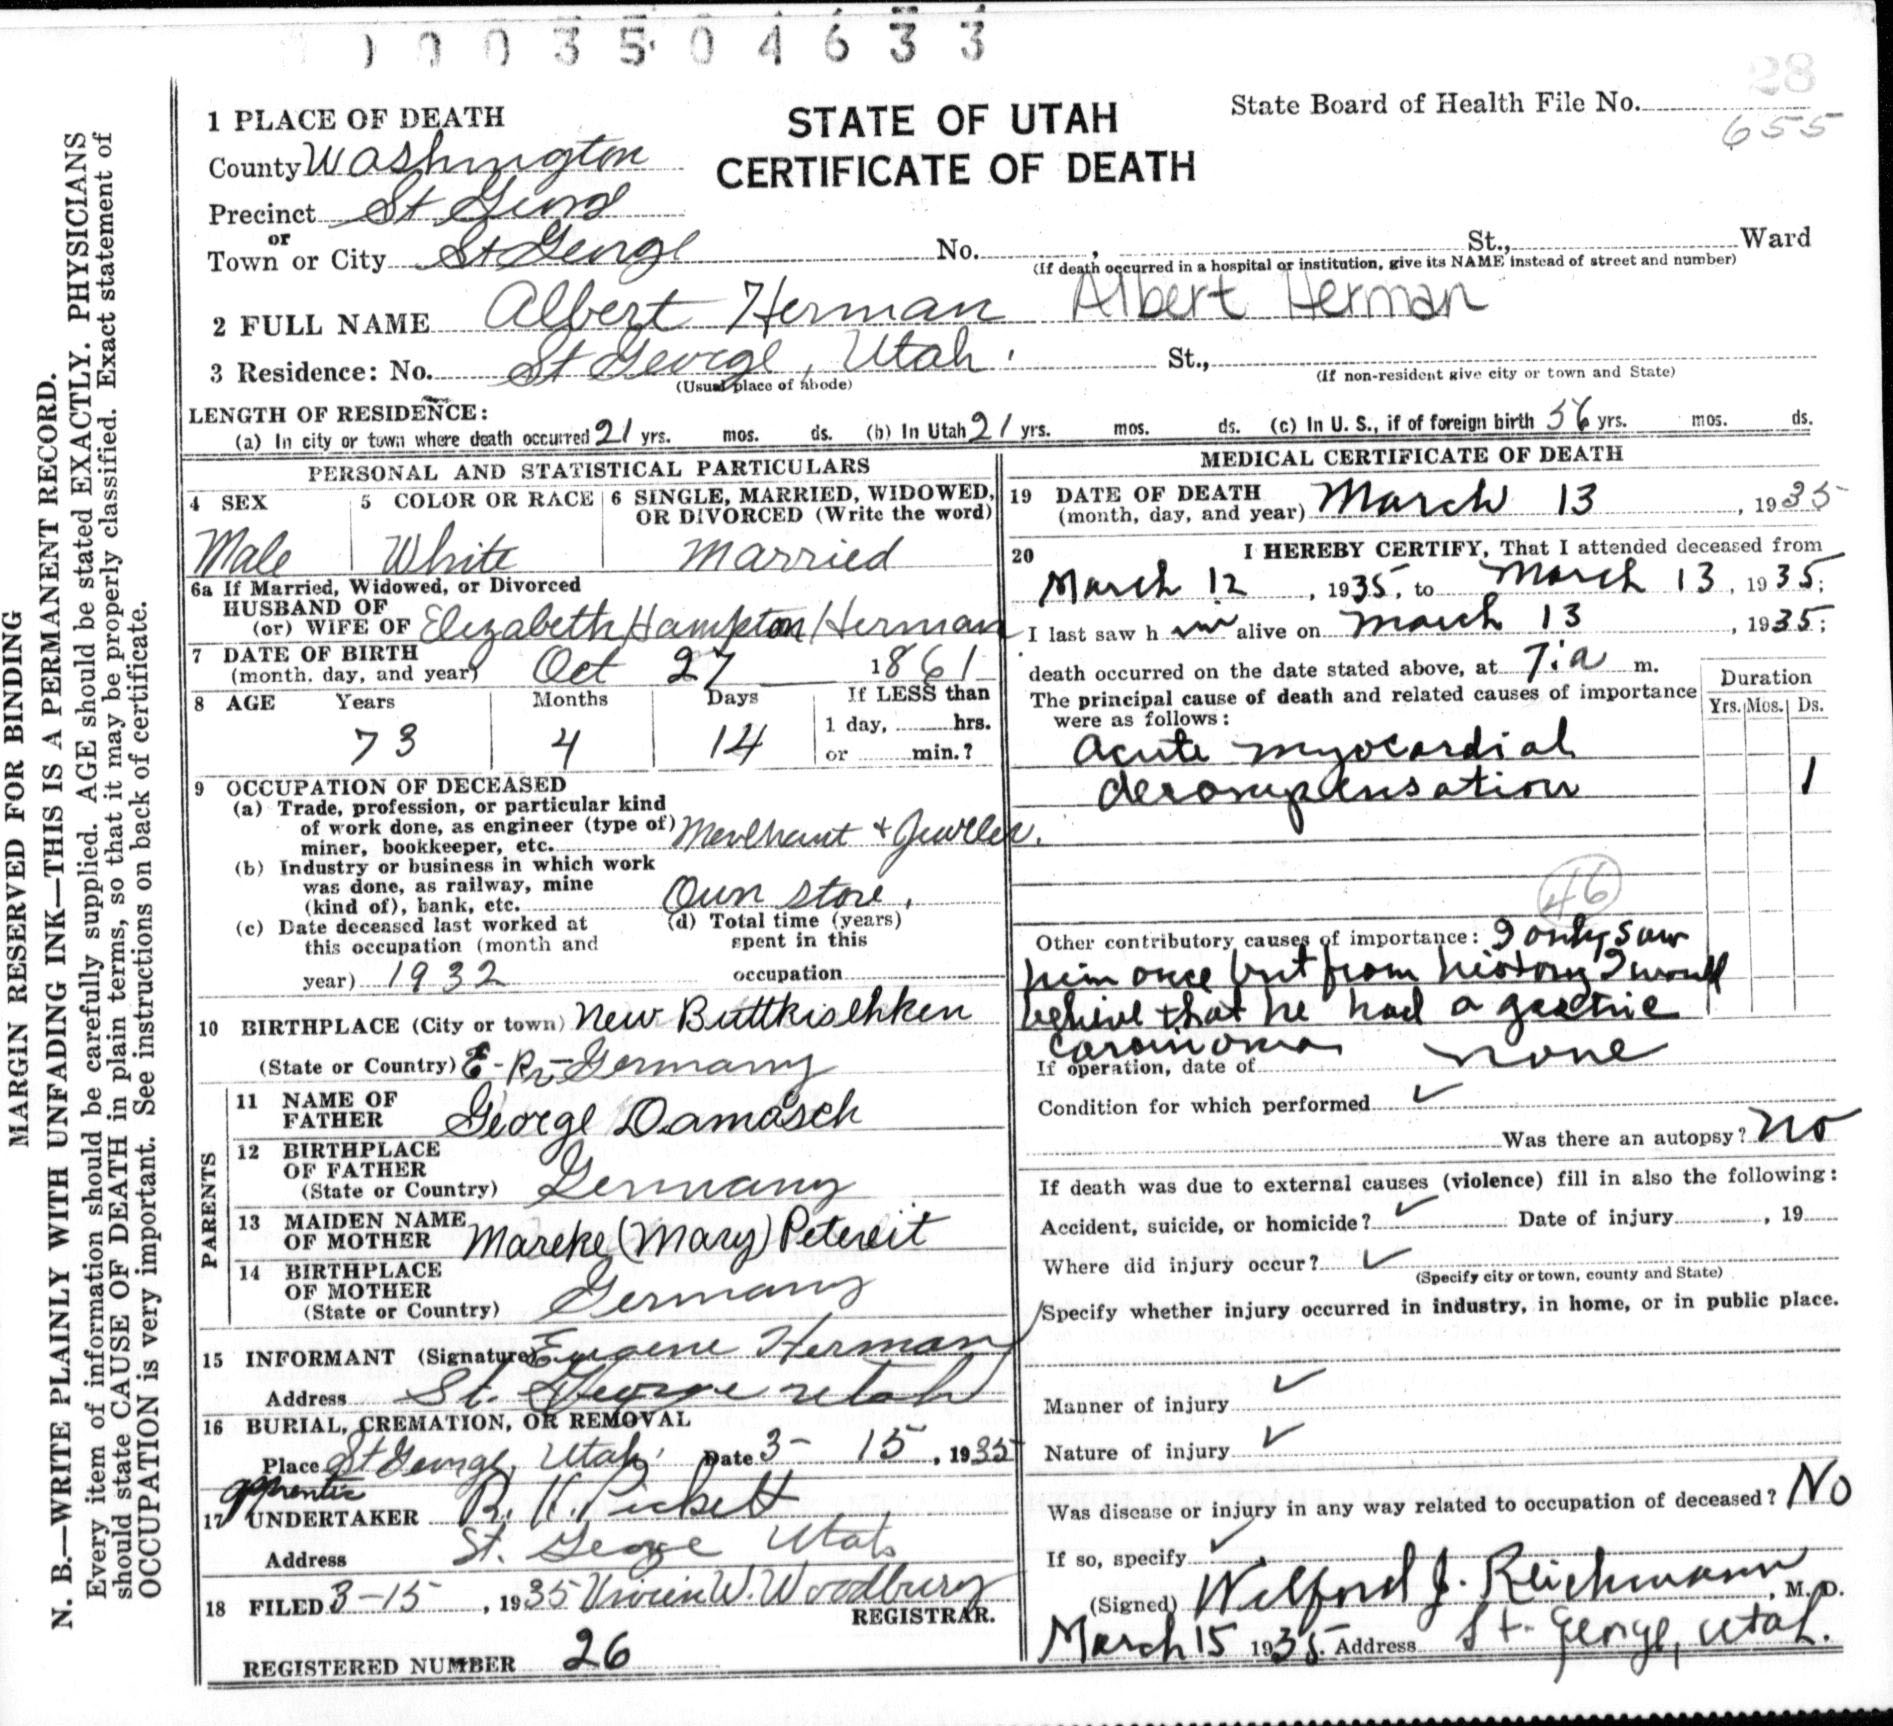 1 0 0 3 5 0 4 6 3 3
28
State Board of Health File No.
655
STATE OF UTAH
CERTIFICATE OF DEATH
1 PLACE OF DEATH
County Washington
Precinct St George
or
Town or City St George No. , St., Ward
(If death occurred in a hospital or institution, give its NAME instead of street and number)
2 FULL NAME Albert Herman Albert Herman
3 Residence: No. St George, Utah. St.,
(Usual place of abode) (If non-resident give city or town and State)
LENGTH OF RESIDENCE:
(a) In city or town where death occurred 21 yrs. mos. ds. (b) In Utah 21 yrs. mos. ds. (c) In U. S., if of foreign birth 56 yrs. mos. ds.
PERSONAL AND STATISTICAL PARTICULARS
4 SEX 5 COLOR OR RACE 6 SINGLE, MARRIED, WIDOWED,
OR DIVORCED (Write the word)
Male White Married
6a If Married, Widowed, or Divorced
HUSBAND OF
(or) WIFE OF Elizabeth Hampton Herman
7 DATE OF BIRTH
(month, day, and year) Oct 27 1861
8 AGE Years Months Days If LESS than
1 day, hrs.
73 4 14 or min.?
9 OCCUPATION OF DECEASED
(a) Trade, profession, or particular kind
of work done, as engineer (type of)
miner, bookkeeper, etc. Merchant + Jeweler.
(b) Industry or business in which work
was done, as railway, mine
(kind of), bank, etc. Own store,
(c) Date deceased last worked at
this occupation (month and
year) 1932
(d) Total time (years)
spent in this
occupation
10 BIRTHPLACE (City or town) New Buttkischken
(State or Country) E-Pr-Germany
PARENTS
11 NAME OF
FATHER George Damasch
12 BIRTHPLACE
OF FATHER
(State or Country) Germany
13 MAIDEN NAME
OF MOTHER Mareke (Mary) Petereit
14 BIRTHPLACE
OF MOTHER
(State or Country) Germany
15 INFORMANT (Signature) Eugene Herman
Address St. George Utah
16 BURIAL, CREMATION, OR REMOVAL
Place St George, Utah. Date 3- 15, 1935
apprentic
17 UNDERTAKER R. H. Pickett
Address St. George Utah
18 FILED 3-15, 1935 Vivien W. Woodbury
REGISTRAR.
REGISTERED NUMBER 26
MEDICAL CERTIFICATE OF DEATH
19 DATE OF DEATH
(month, day, and year) March 13, 1935
20 I HEREBY CERTIFY, That I attended deceased from
March 12, 1935, to March 13, 1935;
I last saw h im alive on March 13, 1935;
death occurred on the date stated above, at 7:a m.
The principal cause of death and related causes of importance
were as follows:
Duration
Yrs. Mos. Ds.
Acute myocardial
decompensation 1
46
Other contributory causes of importance: I only saw
him once but from history I would
believe that he had a gastric
carcinoma
If operation, date of none
Condition for which performed ✓
Was there an autopsy? No
If death was due to external causes (violence) fill in also the following:
Accident, suicide, or homicide? ✓ Date of injury , 19
Where did injury occur? ✓
(Specify city or town, county and State)
Specify whether injury occurred in industry, in home, or in public place.
Manner of injury ✓
Nature of injury ✓
Was disease or injury in any way related to occupation of deceased? No
If so, specify ✓
(Signed) Wilford J. Reichmann, M. D.
March 15 1935. Address St. George, Utah.
MARGIN RESERVED FOR BINDING
N. B.—WRITE PLAINLY WITH UNFADING INK—THIS IS A PERMANENT RECORD.
Every item of information should be carefully supplied. AGE should be stated EXACTLY. PHYSICIANS
should state CAUSE OF DEATH in plain terms, so that it may be properly classified. Exact statement of
OCCUPATION is very important. See instructions on back of certificate.